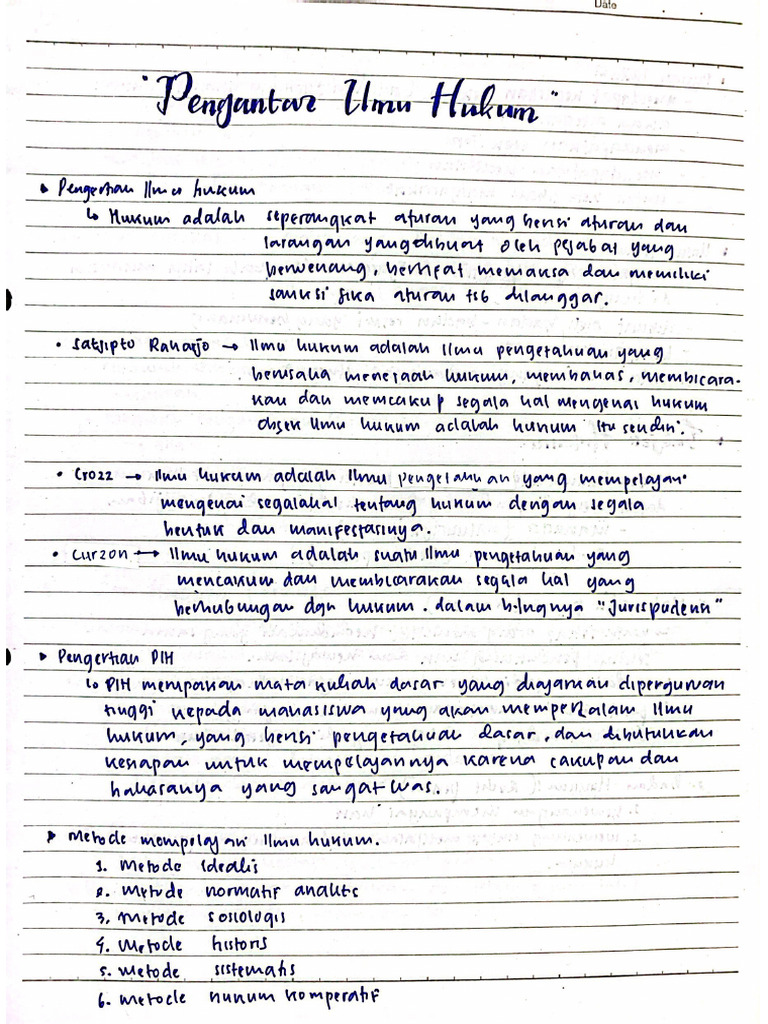 Date
"Pengantar Ilmu Hukum"
Pengertian Ilmu hukum
Hukum adalah seperangkat aturan yang berisi aturan dan
larangan yang dibuat oleh pejabat yang
berwenang, bersifat memaksa dan memiliki
sanksi jika aturan tsb dilanggar.
• Satjipto Raharjo → Ilmu hukum adalah Ilmu pengetahuan yang
berusaha menelaah hukum, membahas, membicara-
kan dan mencakup segala hal mengenai hukum
objek Ilmu hukum adalah hukum itu sendiri.
• Crozz → Ilmu hukum adalah Ilmu pengetahuan yang mempelajari
mengenai segalahal tentang hukum dengan segala
bentuk dan manifestasinya.
• Curzon → Ilmu hukum adalah suatu Ilmu pengetahuan yang
mencakum dan membicarakan segala hal yang
berhubungan dgn hukum. dalam b.Ingnya "Jurispudensi"
Pengertian PIH
PIH merupakan mata kuliah dasar yang diajarkan diperguruan
tinggi kepada mahasiswa yang akan memperdalam Ilmu
hukum, yang berisi pengetahuan dasar, dan dibutuhkan
kesiapan untuk mempelajarinya karena cakupan dan
bahasanya yang sangat luas.
Metode mempelajari Ilmu hukum.
1. Metode idealis
2. Metode normatif analitis
3. Metode sosiologis
4. Metode historis
5. Metode sistematis
6. Metode hukum komperatif